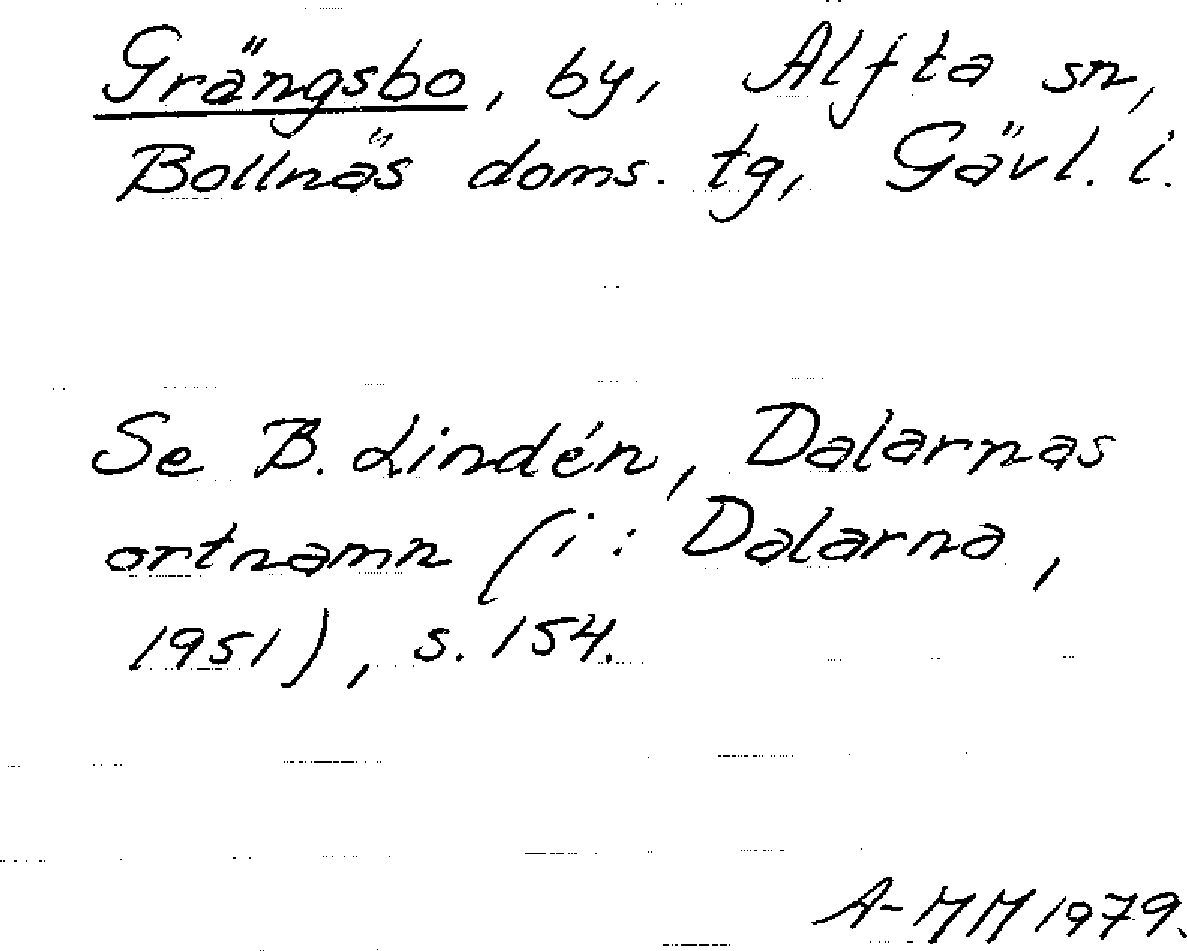 Grängsbo, by, Alfta sn,
Bollnäs doms. tg, Gävl. l.
Se B. Lindén, Dalarnas
ortnamn (i: Dalarna,
1951), s. 154.
A-MM 1979.